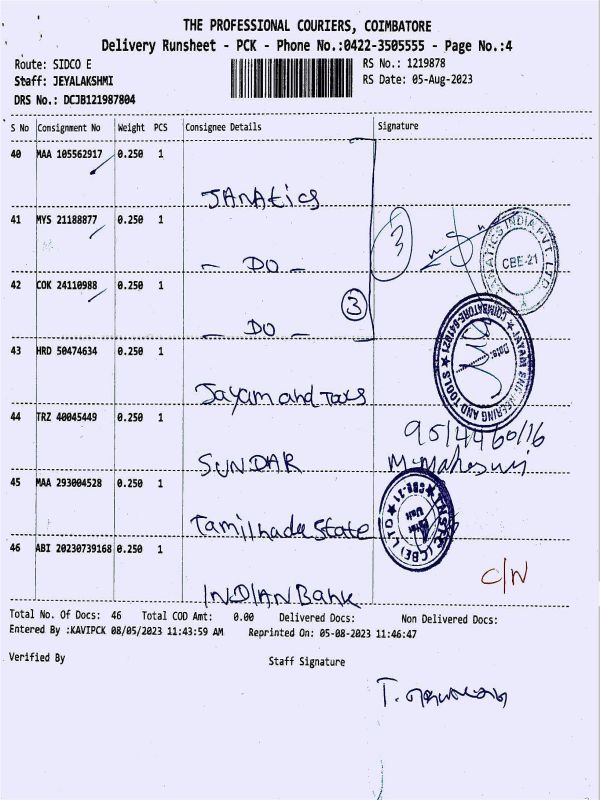 THE PROFESSIONAL COURIERS, COIMBATORE
Delivery Runsheet - PCK - Phone No.:0422-3505555 - Page No.:4
Route: SIDCO E
RS No.: 1219878
Staff: JEYALAKSHMI
RS Date: 05-Aug-2023
DRS No.: DCJB121987804
S No Consignment No Weight PCS Consignee Details Signature
40 MAA 105562917 0.250 1
JANAtics
41 MYS 21188877 0.250 1
3
JANATICS INDIA PVT. LTD.
CBE-21
- DO -
42 COK 24110988 0.250 1
3
- DO -
JAYAM ENGINEERING AND TOOLS
COIMBATORE-641021
Date:
43 HRD 50474634 0.250 1
Jayam and Tools
44 TRZ 40045449 0.250 1
SUNDAR
M. Maheswri
45 MAA 293004528 0.250 1
Tamilnadu State
CBE-21
(CBE) LTD
46 ABI 20230739168 0.250 1
C/N
INDIAN Bank
Total No. Of Docs: 46 Total COD Amt: 0.00 Delivered Docs: Non Delivered Docs:
Entered By :KAVIPCK 08/05/2023 11:43:59 AM Reprinted On: 05-08-2023 11:46:47
Verified By Staff Signature